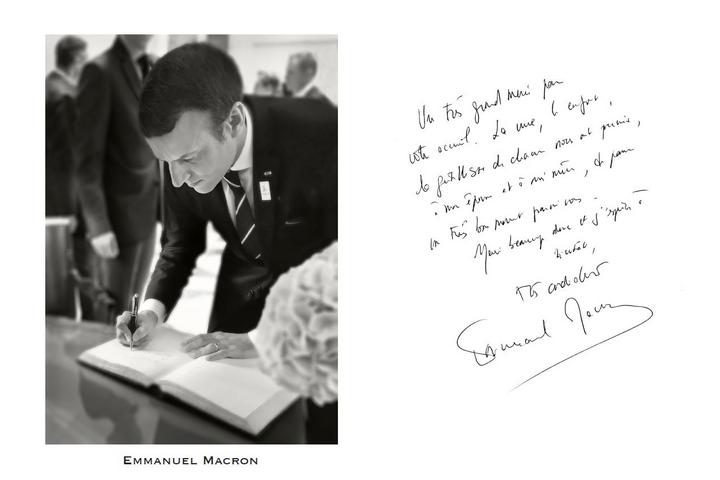 EMMANUEL MACRON
Un très grand merci pour
votre accueil. La vue, le confort,
la gentillesse de chacun nous ont permis,
à mon épouse et à moi même, de passer
un très bon moment parmi vous.
Merci beaucoup donc et j'espère à
bientôt,
Très cordialement
Emmanuel Macron